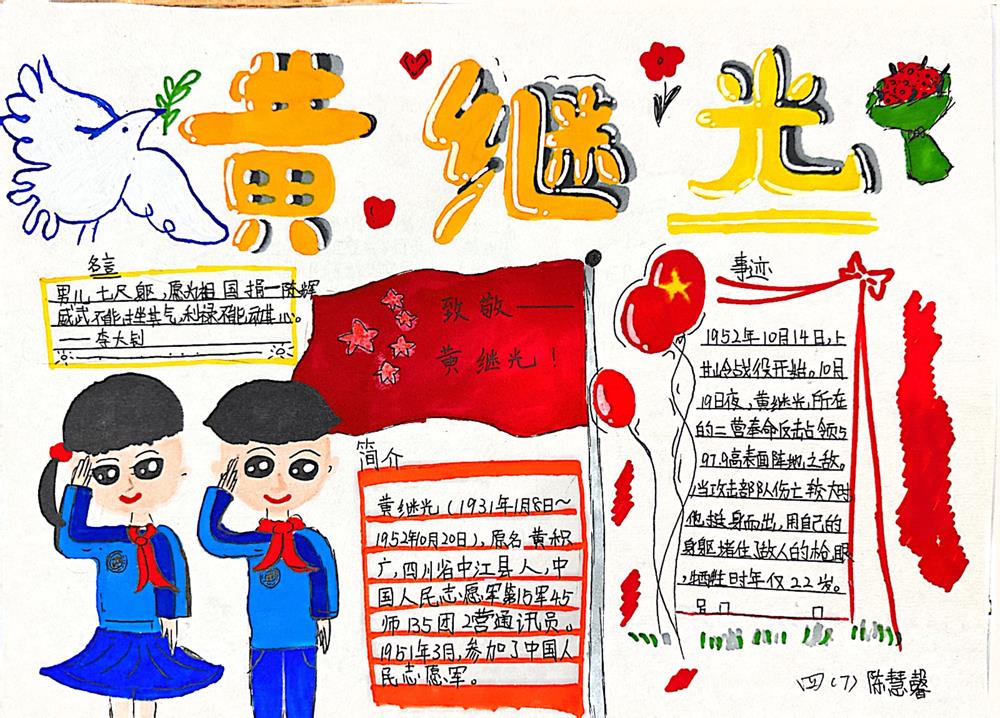 黄继光
名言
男儿七尺躯,愿为祖国捐一陈辉
威武不能挫其气,利禄不能动其心。
——李大钊
致敬——
黄继光!
简介
黄继光(1931年1月8日~
1952年10月20日),原名黄积
广,四川省中江县人,中
国人民志愿军第15军45
师135团2营通讯员。
1951年3月,参加了中国人
民志愿军。
事迹
1952年10月14日,上
甘岭战役开始。10月
19日夜,黄继光所在
的二营奉命反击占领5
97.9高表面阵地之敌。
当攻击部队伤亡较大时
他挺身而出,用自己的
身躯堵住了敌人的枪眼
,牺牲时年仅22岁。
四(7)陈慧馨